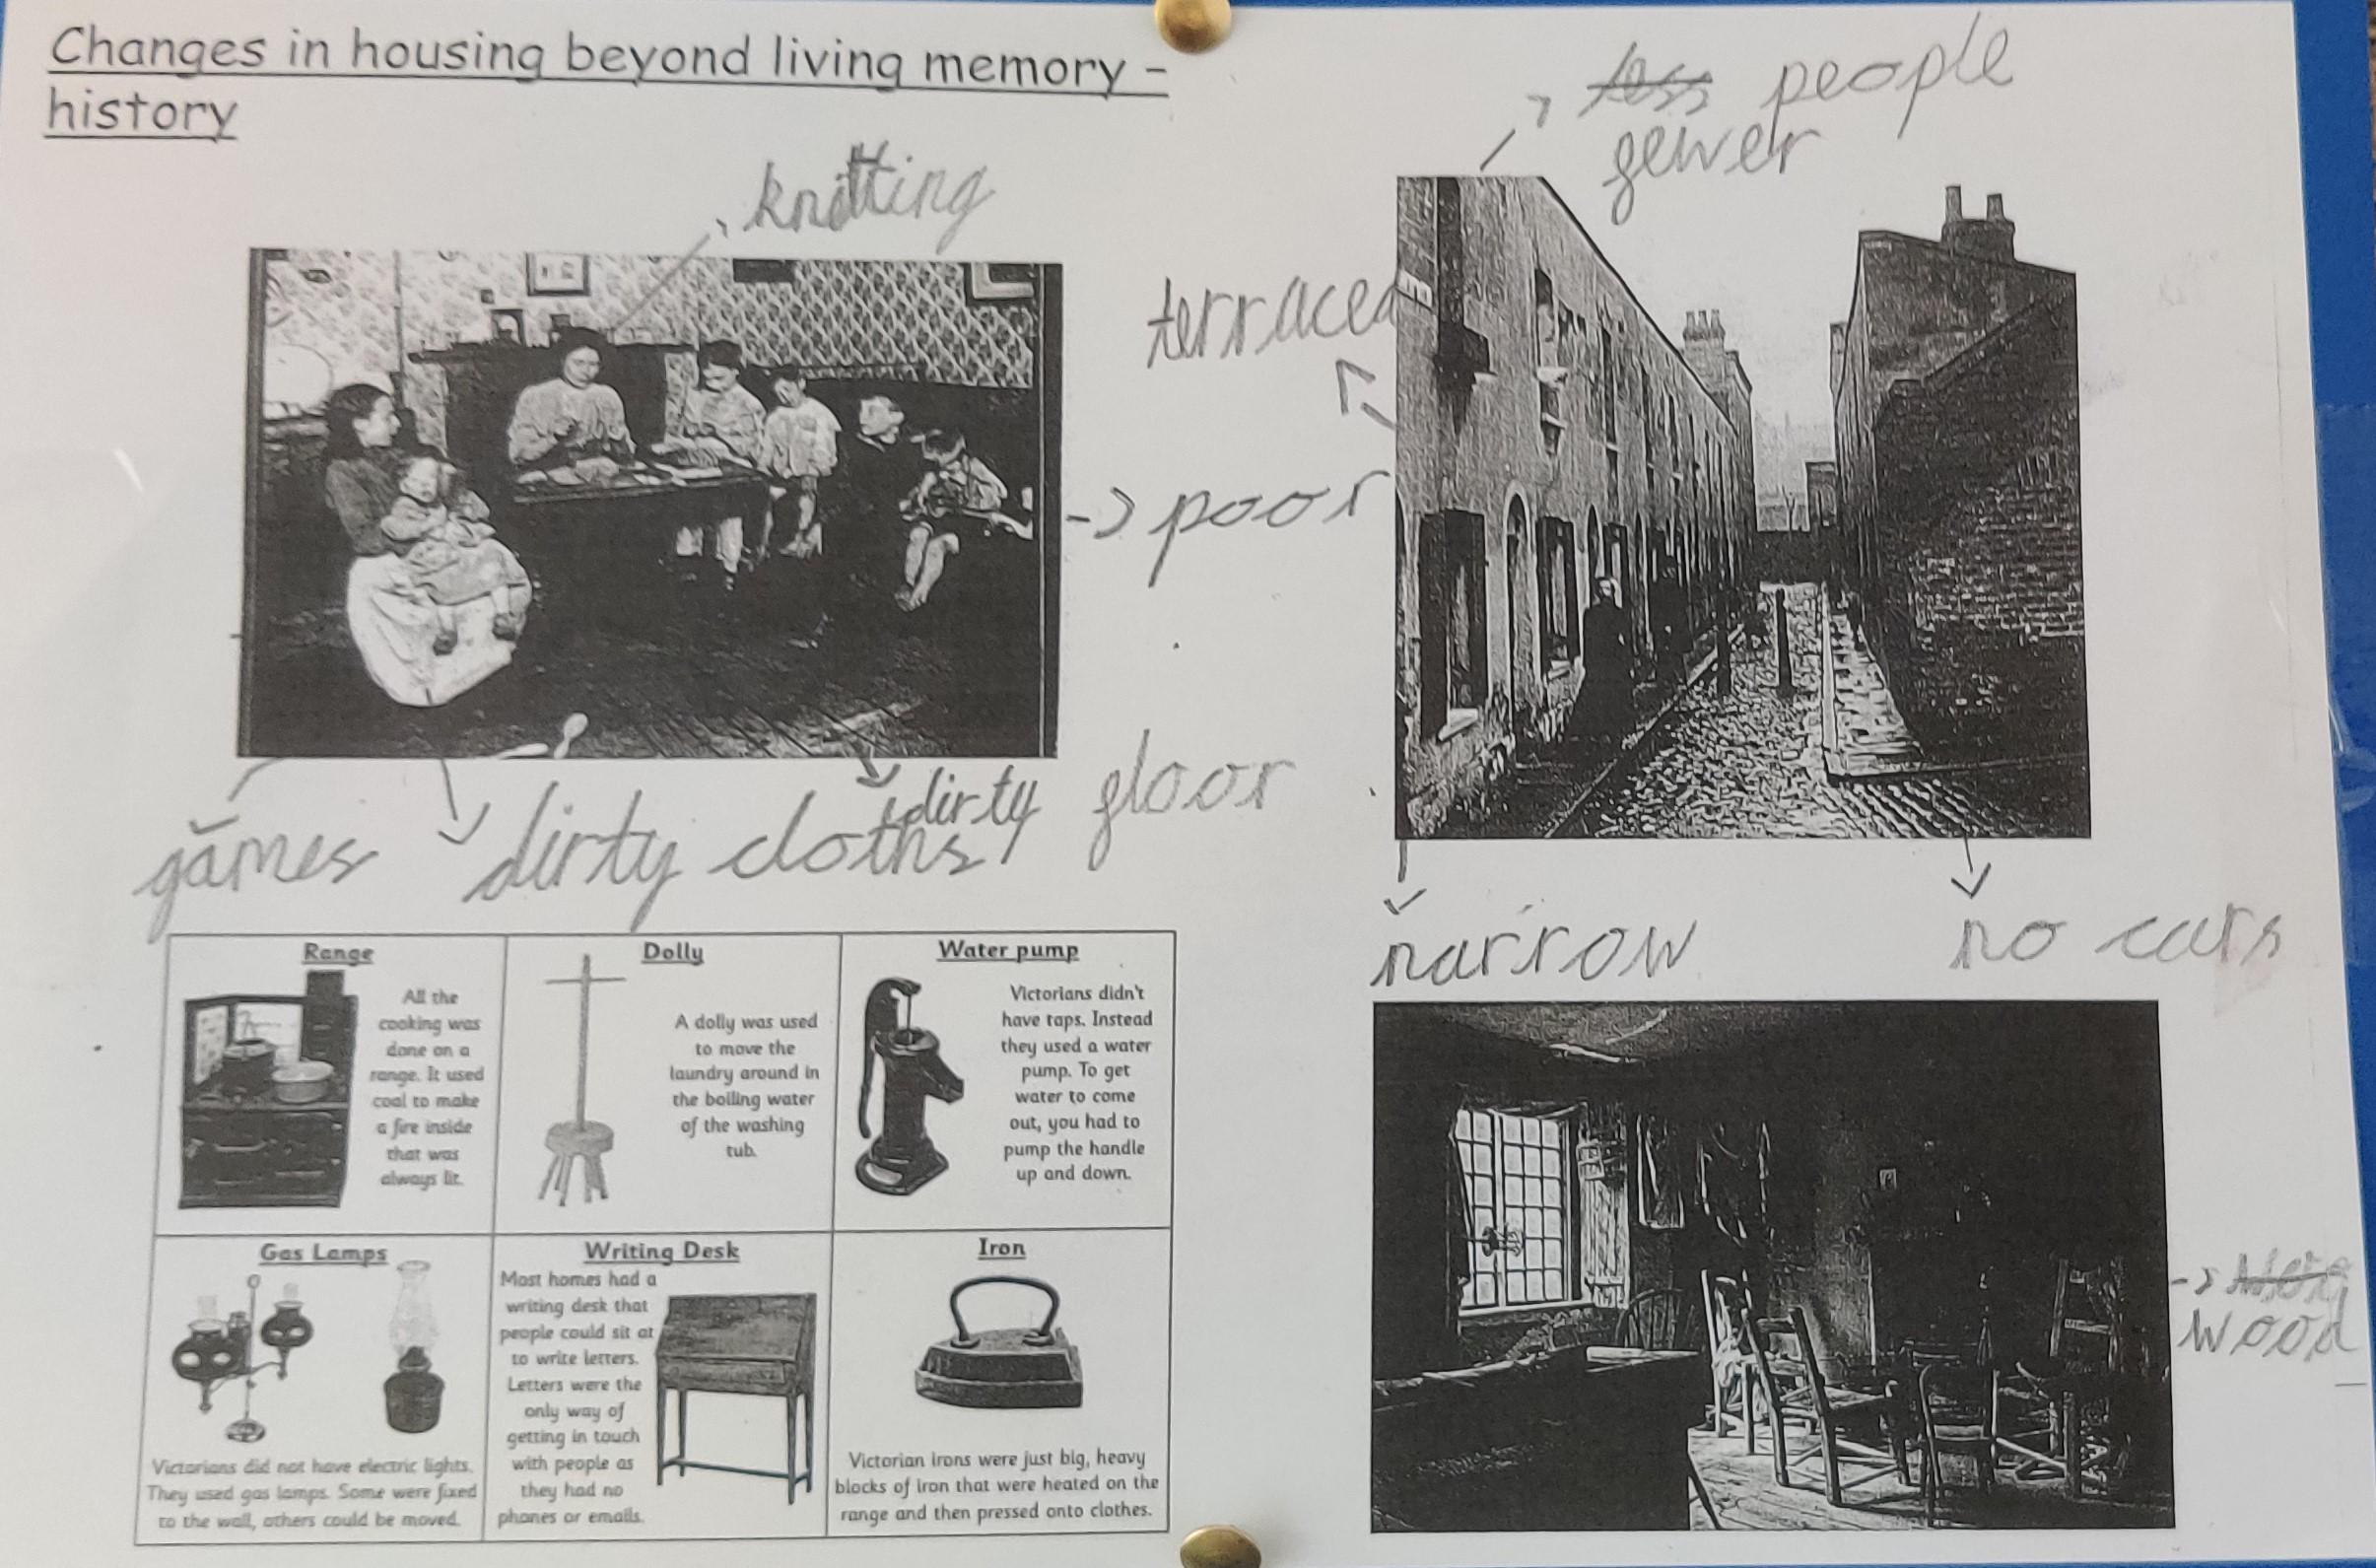 Changes in housing beyond living memory –
history
less people
fewer
knitting
terraced
poor
games
dirty cloths
dirty floor
narrow
no cars
wood
Range
All the
cooking was
done on a
range. It used
coal to make
a fire inside
that was
always lit.
Dolly
A dolly was used
to move the
laundry around in
the boiling water
of the washing
tub.
Water pump
Victorians didn't
have taps. Instead
they used a water
pump. To get
water to come
out, you had to
pump the handle
up and down.
Gas Lamps
Victorians did not have electric lights.
They used gas lamps. Some were fixed
to the wall, others could be moved.
Writing Desk
Most homes had a
writing desk that
people could sit at
to write letters.
Letters were the
only way of
getting in touch
with people as
they had no
phones or emails.
Iron
Victorian irons were just big, heavy
blocks of iron that were heated on the
range and then pressed onto clothes.